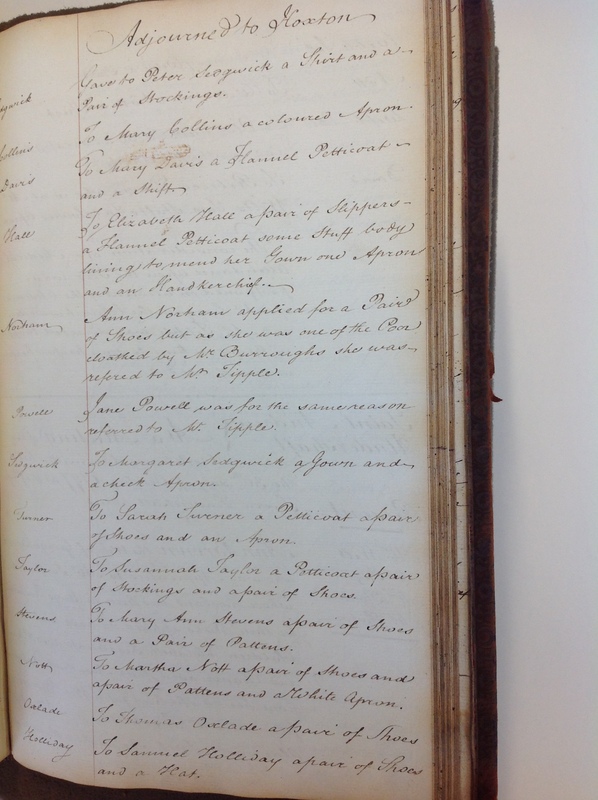 Adjourned to Hoxton
Gave to Peter Sedgwick a Shirt and a
Pair of Stockings.
Collins
To Mary Collins a coloured Apron
Davis
To Mary Davis a Flannel Petticoat
and a Shift
Hall
To Elizabeth Hall a pair of Slippers
a Flannel Petticoat some Stuff body
lining to mend her Gown one Apron
and an Handkerchief.
Norham
Ann Norham applied for a Pair
of Shoes but as she was one of the Poor
cloathed by Mr Burroughs she was
refered to Mr Tipple.
Powell
Jane Powell was for the same reason
referred to Mr Tipple.
Sidgwick
To Margaret Sedgwick a Gown and
a check Apron.
Turner
To Sarah Turner a Petticoat a pair
of Shoes and an Apron.
Taylor
To Susannah Taylor a Petticoat a pair
of Stockings and a pair of Shoes.
Stevens
To Mary Ann Stevens a pair of Shoes
and a Pair of Pattens.
Nott
To Martha Nott a pair of Shoes and
a pair of Pattens and a White Apron.
Oxlade
To Thomas Oxlade a pair of Shoes
Holliday
To Samuel Holliday a pair of Shoes
and a Hat.